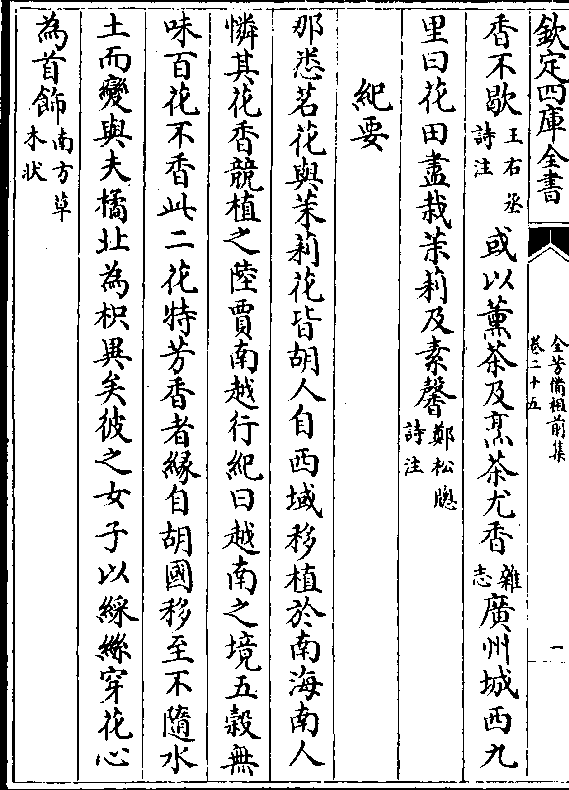 欽定四庫全書
全芳備祖前集
卷二十五
一
香不歇王右丞詩注 或以薰茶及烹茶尤香雜志廣州城西九
里曰花田盡栽茉莉及素馨鄭松牕詩注
紀要
那悉茗花與茉莉花皆胡人自西域移植於南海南人
憐其花香競植之陸賈南越行紀曰越南之境五穀無
味百花不香此二花特芳香者緣自胡國移至不隨水
土而變與夫橘北為枳異矣彼之女子以綵絲穿花心
為首飾南方草木狀